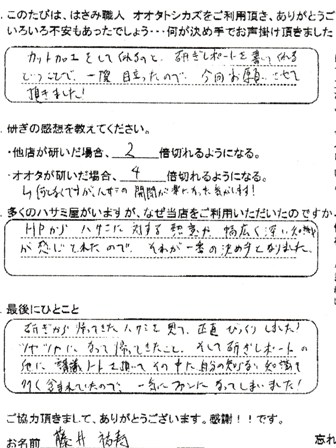 ．このたびは、はさみ職人 オオタトシカズをご利用頂き、ありがとうご
いろいろ不安もあったでしょう・・・何が決め手でお声掛け頂きました
カット加工をしてくれるのと、研ぎレポートを書いてくれる
ということで、一度 目立ったので、今回お願いさせて
頂きました！
．研ぎの感想を教えてください。
・他店が研いだ場合、 2 倍切れるようになる。
・オオタが研いだ場合、 4 倍切れるようになる。
↳ 何となくですが、ハサミの開閉が楽になった気がします！
．多くのハサミ屋がいますが、なぜ当店をご利用いただいたのですか
HPから ハサミに対する 熱意や 幅広く深い知識
が感じてとれたので、それが一番の決め手となりました。
．最後にひとこと
研ぎから 帰ってきた ハサミを見て、正直 びっくりしました！
ツヤツヤに なって帰ってきたこと、そして研ぎレポートの
他に 講義ノートを 頂いて その中に 自分の知らない 知識を
多く 含まれていたので 一気にファンに なってしまいました！
ご協力頂きまして、ありがとうございます。感謝！！です。
お名前 藤井
忘れ